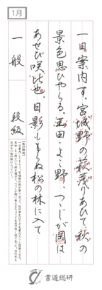 1月
一日案内す。宮城野の萩茂りあひて秋の
景色思ひやらるゝ。玉田・よこ野、つゝじが岡は
あせび咲比也。日影ももらぬ松の林に入て
一般 段級
書道総研